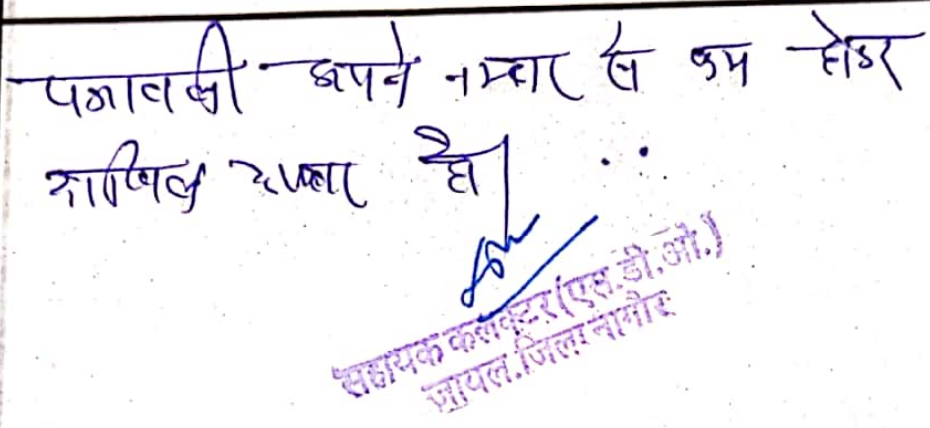 पत्रावली अपने नम्बर से कम होकर
दाखिल दफ्तर हो।
सहायक कलक्टर(एस.डी.ओ.)
जायल, जिला नागौर